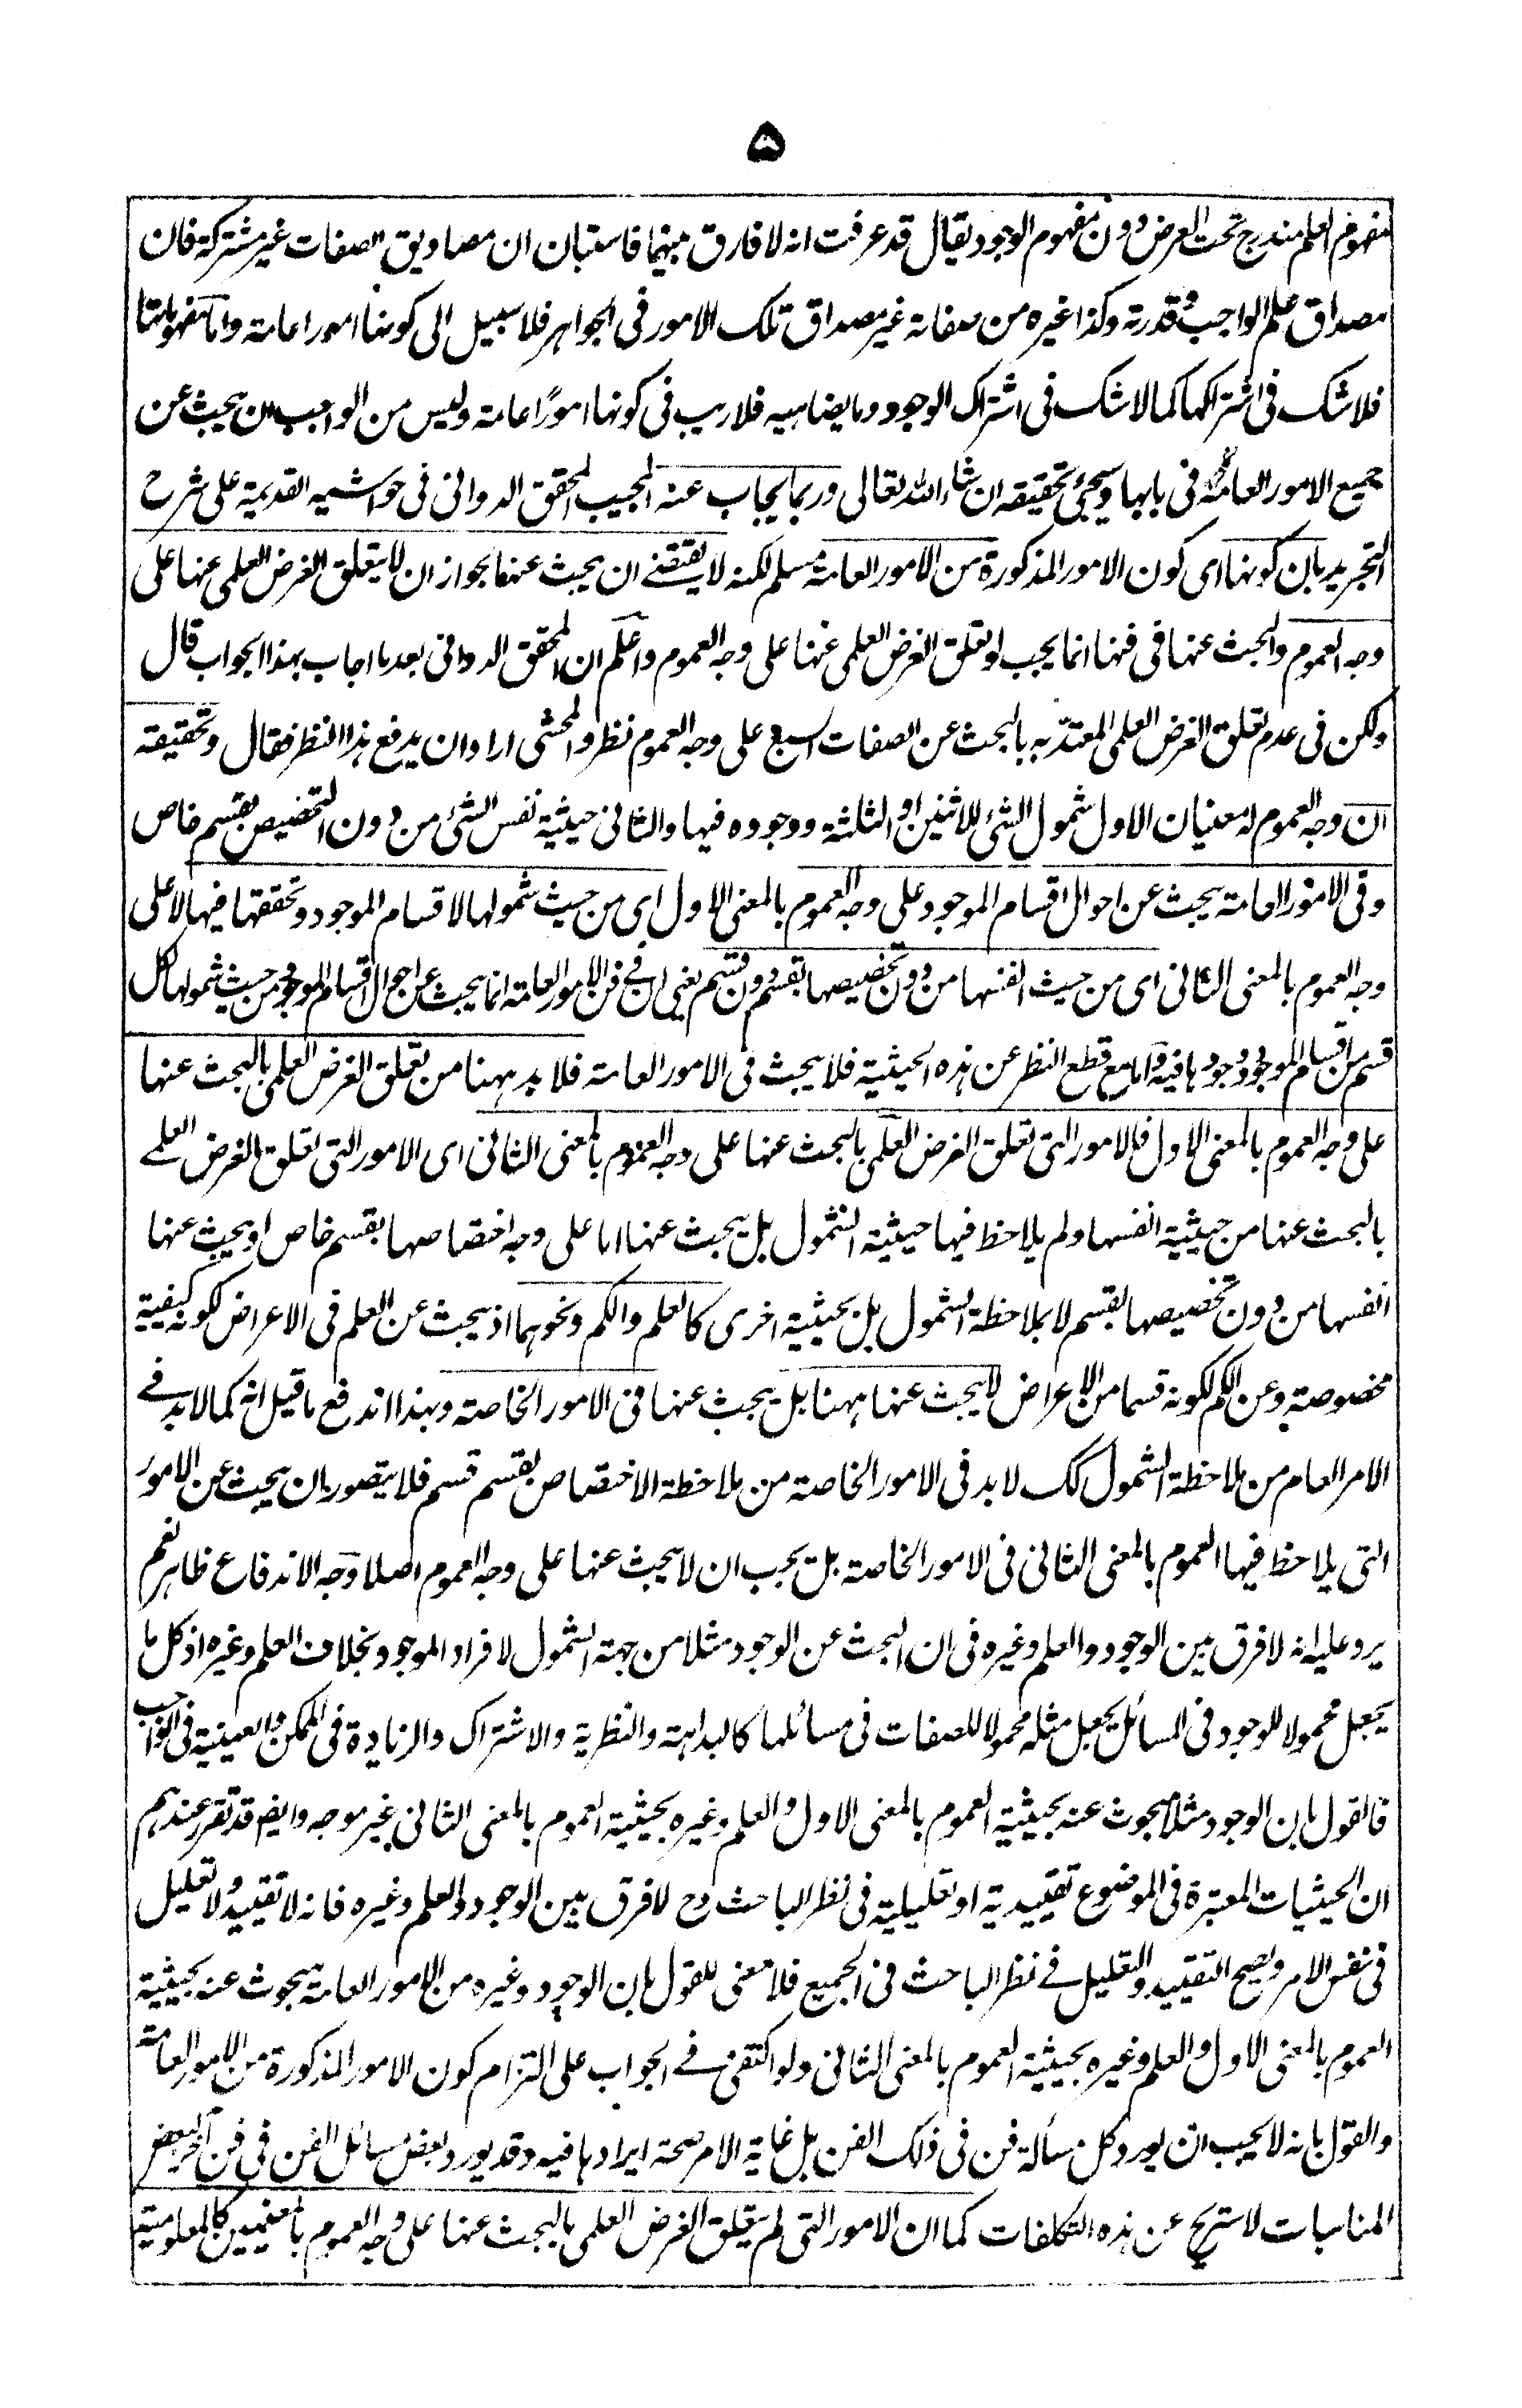 ۵
مفهوم العلم مندرج تحت العرض دون مفهوم الوجود يقال قد عرفت انه لا فارق بينهما فاستبان ان مصاديق الصفات غير مشتركة فان
مصداق علم الواجب وقدرته وكذا غيره من صفاته غير مصداق تلك الامور فى الجواهر فلا سبيل الى كونها امورا عامة واما مفهوماتها
فلا شك فى اشتراكها كما لا شك فى اشتراك الوجود وما يضاهيه فلا ريب فى كونها امورًا عامة وليس من الواجب ان يبحث عن
جميع الامور العامة فى بابها وسيجئ تحقيقه ان شاء الله تعالى وربما يجاب عنه المجيب المحقق الدوانى فى حواشيه القديمة على شرح
التجريد بان كونها اى كون الامور المذكورة من الامور العامة مسلم لكنه لا يقتضے ان يبحث عنها لجواز ان لا يتعلق الغرض العلمى عنها على
وجه العموم والبحث عنها فى فنها انما يجب لو تعلق الغرض العلمى عنها على وجه العموم واعلم ان المحقق الدوانى بعد ما اجاب بهذا الجواب قال
ولكن فى عدم تعلق الغرض العلمى المعتد به بالبحث عن الصفات السبع على وجه العموم نظر والمحشى اراد ان يدفع هذا النظر فقال وتحقيقه
ان وجه العموم له معنيان الاول شمول الشئ للاثنين او الثلثة ووجوده فيها والثانى حيثية نفس الشئ من دون التخصيص بقسم خاص
وفى الامور العامة يبحث عن احوال اقسام الموجود على وجه العموم بالمعنى الاول اى من حيث شمولها لاقسام الموجود وتحققها فيها لا على
وجه العموم بالمعنى الثانى اى من حيث انفسها من دون تخصيصها بقسم دون قسم يعنى ان فے فن الامور العامة انما يبحث عن احوال اقسام الموجود من حيث شمولها لكل
قسم من اقسام الموجود ووجودها فيه واما مع قطع النظر عن هذه الحيثية فلا يبحث فى الامور العامة فلا بد ههنا من تعلق الغرض العلمى بالبحث عنها
على وجه العموم بالمعنى الاول فالامور التى تعلق الغرض العلمى بالبحث عنها على وجه العموم بالمعنى الثانى اى الامور التى تعلق الغرض العلمے
بالبحث عنها من حيثية انفسها ولم يلاحظ فيها حيثية الشمول بل يبحث عنها اما على وجه اختصاصها بقسم خاص او يبحث عنها
انفسها من دون تخصيصها بقسم لا بملاحظة الشمول بل بحيثية اخرى كالعلم والكم ونحوهما اذ يبحث عن العلم فى الاعراض لكونه كيفية
مخصوصة وعن الكم لكونه قسما من الاعراض لا يبحث عنها ههنا بل يبحث عنها فى الامور الخاصة وبهذا اندفع ما قيل انه كما لا بد فے
الامر العام من ملاحظة الشمول كك لا بد فى الامور الخاصة من ملاحظة الاختصاص بقسم قسم فلا يتصور ان يبحث عن الامور
التى يلاحظ فيها العموم بالمعنى الثانى فى الامور الخاصة بل يجب ان لا يبحث عنها على وجه العموم اصلا وجه الاندفاع ظاهر نعم
يرد عليه انه لا فرق بين الوجود والعلم وغيره فى ان البحث عن الوجود مثلا من جهة الشمول لافراد الموجود بخلاف العلم وغيره اذ كل ما
يجعل محمولا للوجود فى المسائل يجعل مثله محمولا للصفات فى مسائلها كالبداهة والنظرية والاشتراك والزيادة فى الممكن والعينية فى الواجب
فالقول بان الوجود مثلا مبحوث عنه بحيثية العموم بالمعنى الاول والعلم وغيره بحيثية العموم بالمعنى الثانى غير موجه وايضا قد تقرر عندهم
ان الحيثيات المعتبرة فى الموضوع تقييدية او تعليلية فى نظر الباحث وح لا فرق بين الوجود والعلم وغيره فانه لا تقييد ولا تعليل
فى نفس الامر ويصح التقييد والتعليل فے نظر الباحث فى الجميع فلا معنى للقول بان الوجود وغيره من الامور العامة مبحوث عنه بحيثية
العموم بالمعنى الاول والعلم وغيره بحيثية العموم بالمعنى الثانى ولو اكتفى فے الجواب على التزام كون الامور المذكورة من الامور العامة
والقول بانه لا يجب ان يورد كل مسألة فن فى ذلك الفن بل غاية الامر صحة ايرادها فيه وقد يورد بعض مسائل الفن فى فن آخر لبعض
المناسبات لاستريح عن هذه التكلفات كما ان الامور التى لم يتعلق الغرض العلمى بالبحث عنها على وجه العموم بالمعنيين كالمعلومية